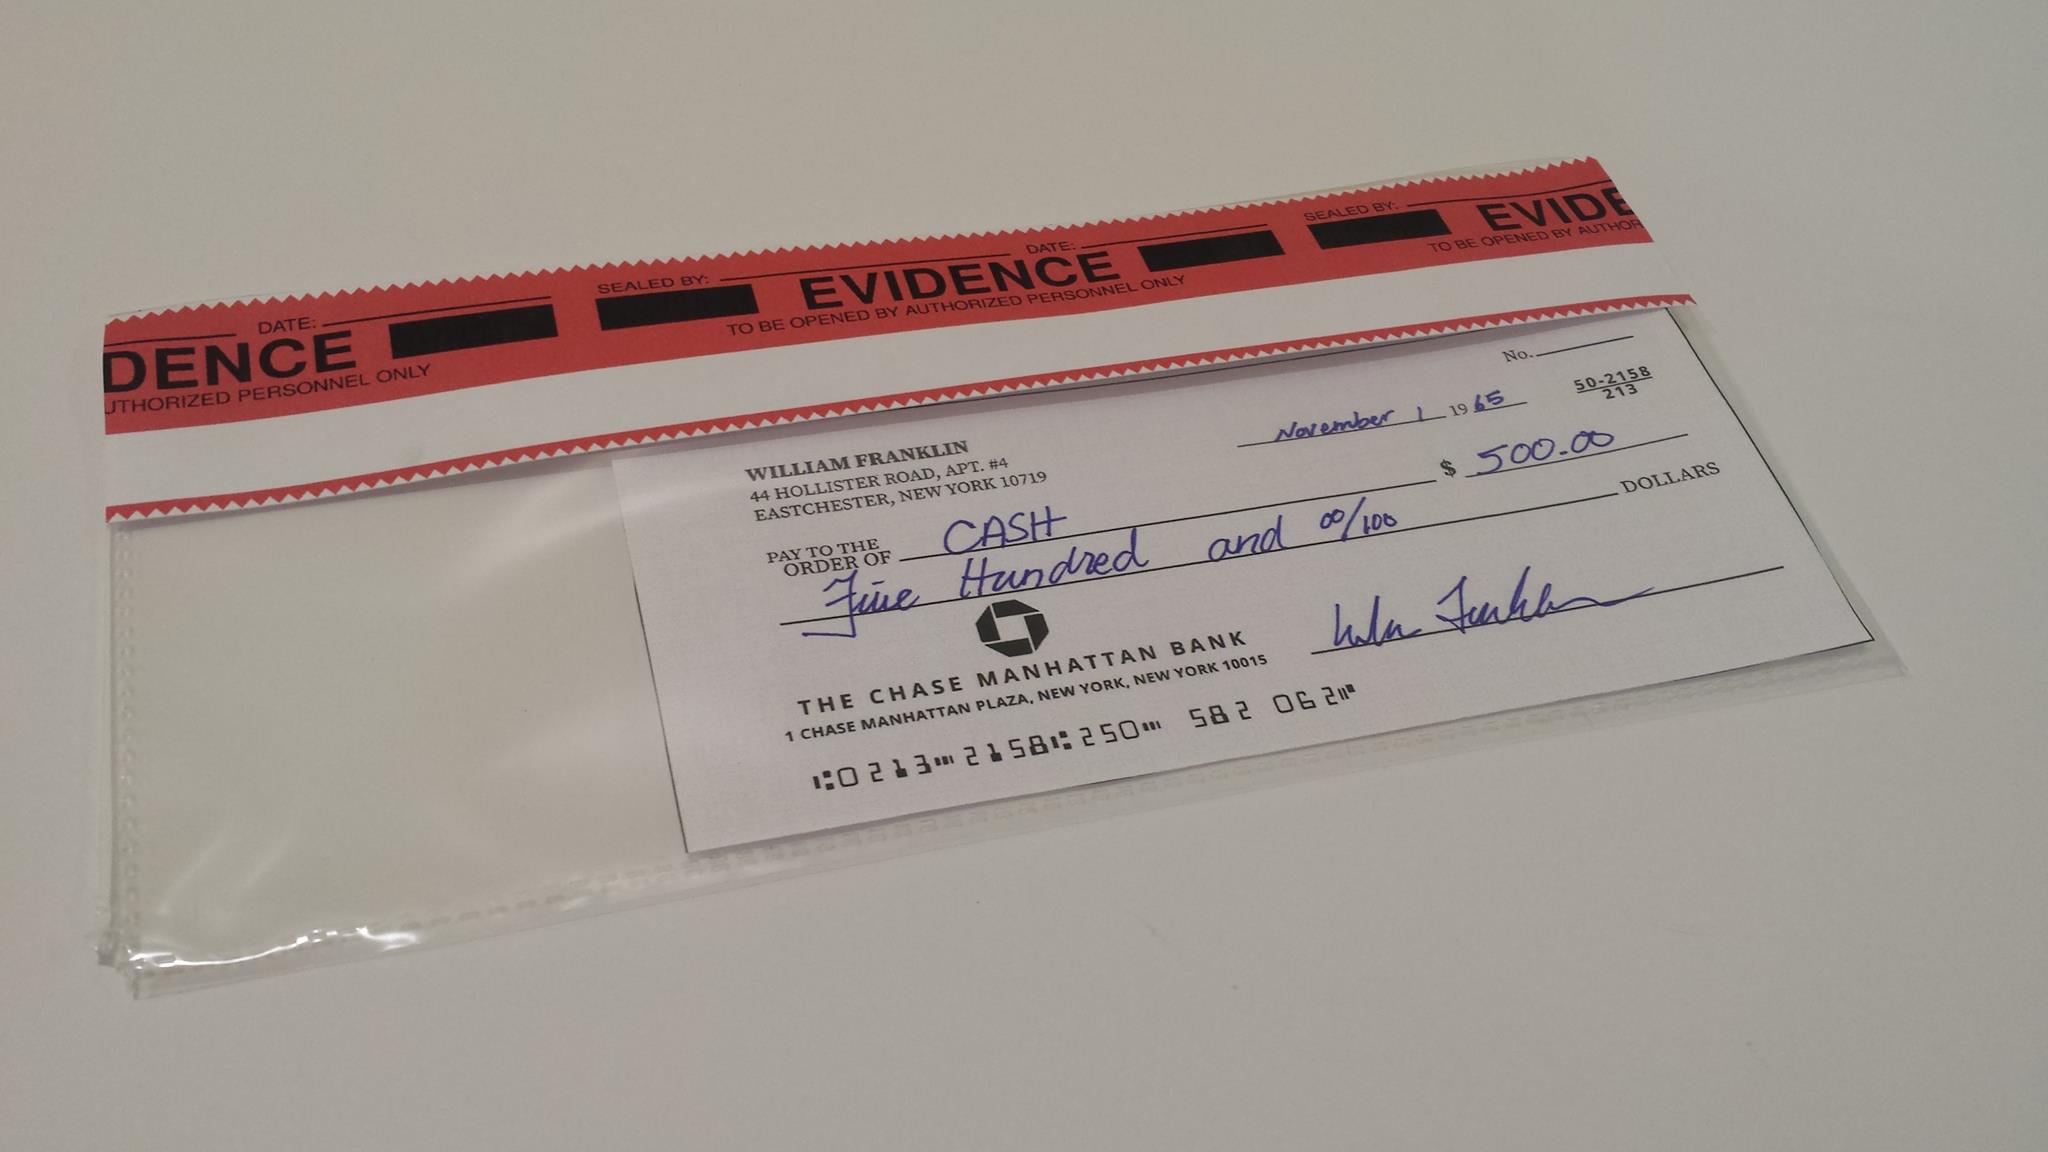 DENCE DATE:
UTHORIZED PERSONNEL ONLY
SEALED BY: EVIDENCE DATE:
TO BE OPENED BY AUTHORIZED PERSONNEL ONLY
SEALED BY: EVIDE
TO BE OPENED BY AUTHOR
No.
50-2158
213
November 1 19 65
WILLIAM FRANKLIN
44 HOLLISTER ROAD, APT. #4
EASTCHESTER, NEW YORK 10719
$ 500.00
PAY TO THE
ORDER OF CASH
Five Hundred and 00/100 DOLLARS
THE CHASE MANHATTAN BANK
1 CHASE MANHATTAN PLAZA, NEW YORK, NEW YORK 10015
William Franklin
⑆0213⑉2158⑆250⑈ 582 062⑈